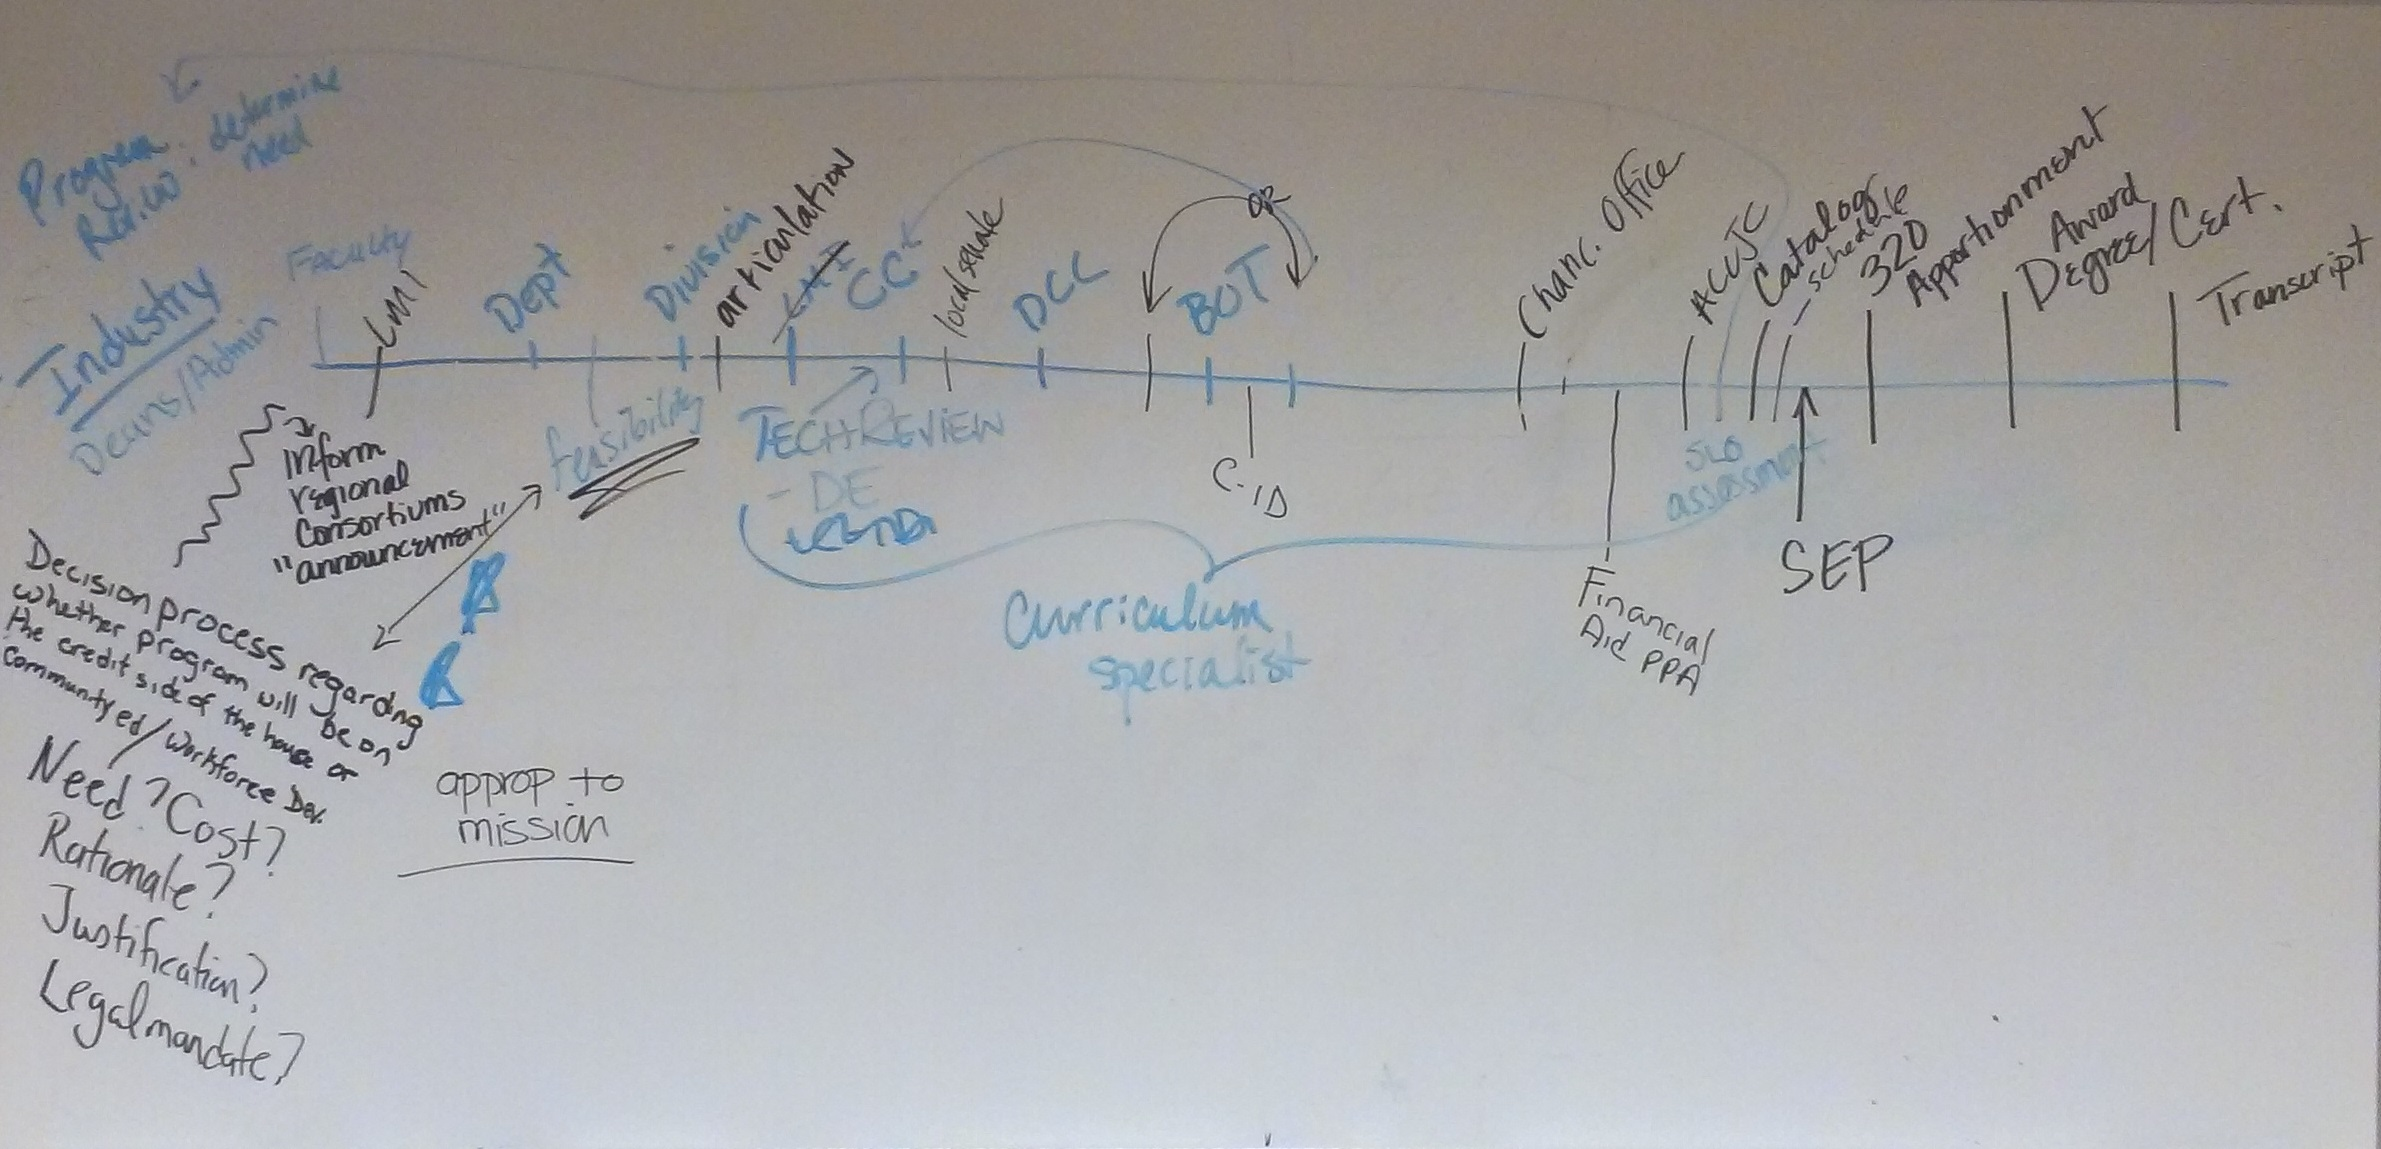 Program
determine
need
Faculty
Industry
Deans/Admin
LMI
Dept
Division
articulation
CC
local senate
DCC
BOT
or
Chanc. Office
ACCJC
Catalog
- schedule
320
Apportionment
Award
Degree/Cert.
Transcript
inform
regional
Consortiums
"announcement"
feasibility
TECH REVIEW
- DE
C-ID
SLO
assessment
SEP
Financial
Aid PPA
Curriculum
specialist
Decision process regarding
whether program will be on
the credit side of the house or
Community ed/Workforce Dev.
Need? Cost?
Rationale?
Justification?
Legal mandate?
approp to
mission